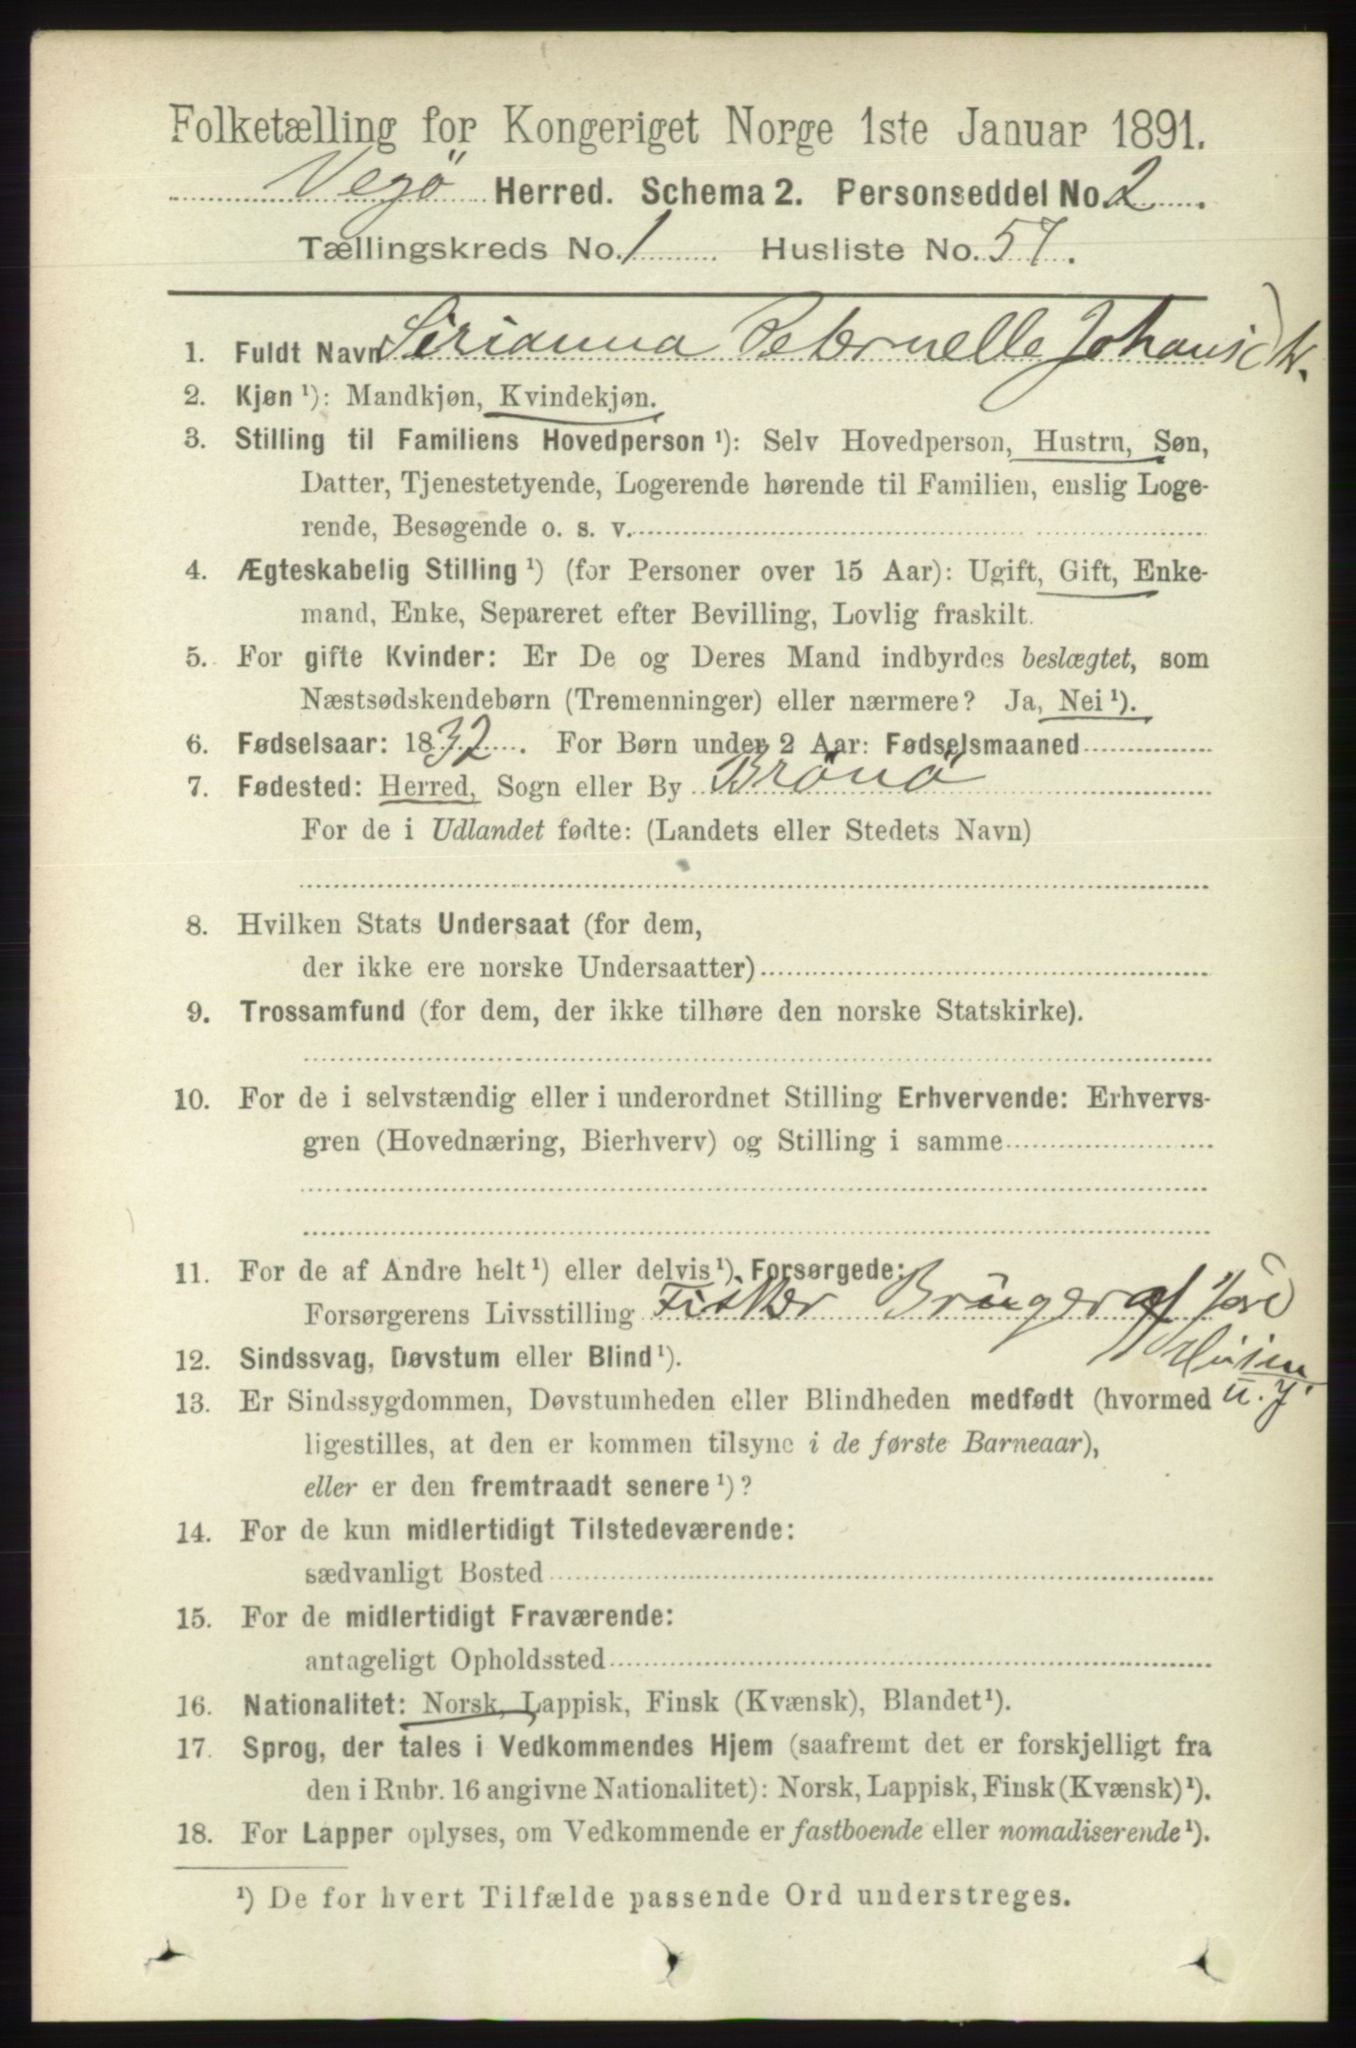 Folketælling for Kongeriget Norge 1ste Januar 1891.
Vegö Herred. Schema 2. Personseddel No. 2.
Tællingskreds No. 1 Husliste No. 57.
1. Fuldt Navn Sirianna Peternelle Johansdtr.
2. Kjøn ¹): Mandkjøn, Kvindekjøn.
3. Stilling til Familiens Hovedperson ¹): Selv Hovedperson, Hustru, Søn,
Datter, Tjenestetyende, Logerende hørende til Familien, enslig Loge-
rende, Besøgende o. s. v.
4. Ægteskabelig Stilling ¹) (for Personer over 15 Aar): Ugift, Gift, Enke-
mand, Enke, Separeret efter Bevilling, Lovlig fraskilt.
5. For gifte Kvinder: Er De og Deres Mand indbyrdes beslægtet, som
Næstsødskendebørn (Tremenninger) eller nærmere? Ja, Nei ¹).
6. Fødselsaar: 1832. For Børn under 2 Aar: Fødselsmaaned
7. Fødested: Herred, Sogn eller By Brönö
For de i Udlandet fødte: (Landets eller Stedets Navn)
8. Hvilken Stats Undersaat (for dem,
der ikke ere norske Undersaatter)
9. Trossamfund (for dem, der ikke tilhøre den norske Statskirke).
10. For de i selvstændig eller i underordnet Stilling Erhvervende: Erhvervs-
gren (Hovednæring, Bierhverv) og Stilling i samme
11. For de af Andre helt ¹) eller delvis ¹) Forsørgede:
Forsørgerens Livsstilling Fisker Brüger af Jord
12. Sindssvag, Døvstum eller Blind ¹).
13. Er Sindssygdommen, Døvstumheden eller Blindheden medfødt (hvormed
ligestilles, at den er kommen tilsyne i de første Barneaar),
eller er den fremtraadt senere ¹)?
14. For de kun midlertidigt Tilstedeværende:
sædvanligt Bosted
15. For de midlertidigt Fraværende:
antageligt Opholdssted
16. Nationalitet: Norsk, Lappisk, Finsk (Kvænsk), Blandet ¹).
17. Sprog, der tales i Vedkommendes Hjem (saafremt det er forskjelligt fra
den i Rubr. 16 angivne Nationalitet): Norsk, Lappisk, Finsk (Kvænsk) ¹).
18. For Lapper oplyses, om Vedkommende er fastboende eller nomadiserende ¹).
¹) De for hvert Tilfælde passende Ord understreges.